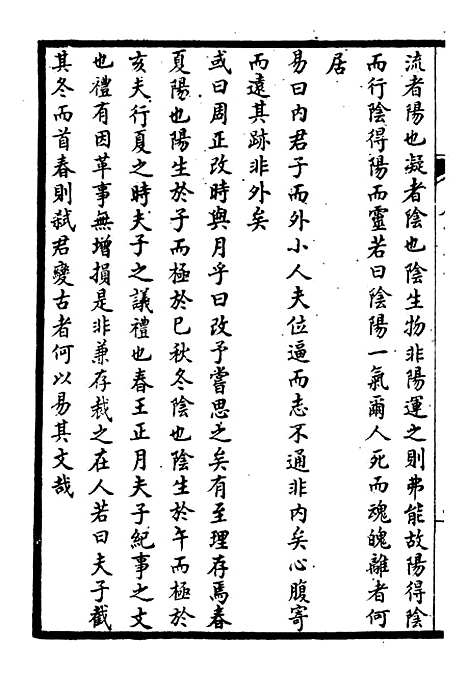 流者陽也凝者陰也陰生物非陽運之則弗能故陽得陰
而行陰得陽而靈若曰陰陽一氣爾人死而魂魄離者何
居
易曰内君子而外小人夫位逼而志不通非内矣心腹寄
而遠其跡非外矣
或曰周正改時與月乎曰改予嘗思之矣有至理存焉春
夏陽也陽生於子而極於巳秋冬陰也陰生於午而極於
亥夫行夏之時夫子之議禮也春王正月夫子紀事之文
也禮有因革事無增損是非兼存裁之在人若曰夫子截
其冬而首春則弑君變古者何以易其文哉